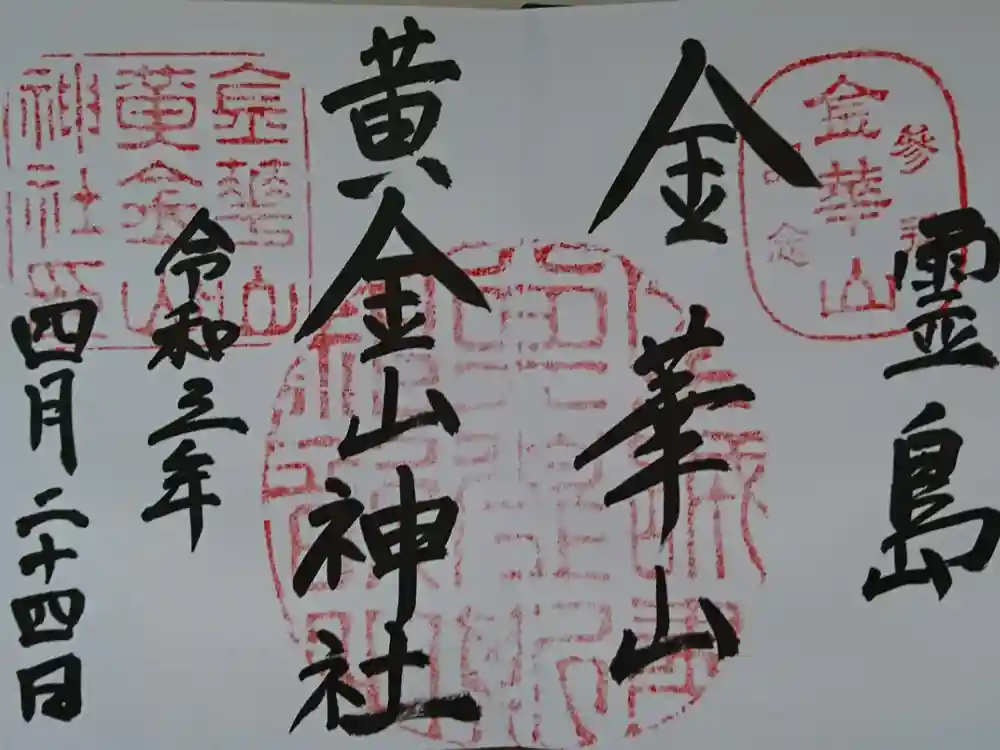 霊島
金華山
黄金山神社
令和三年
四月二十四日
参拝
金華山
念
金華山
黄金山
神社印